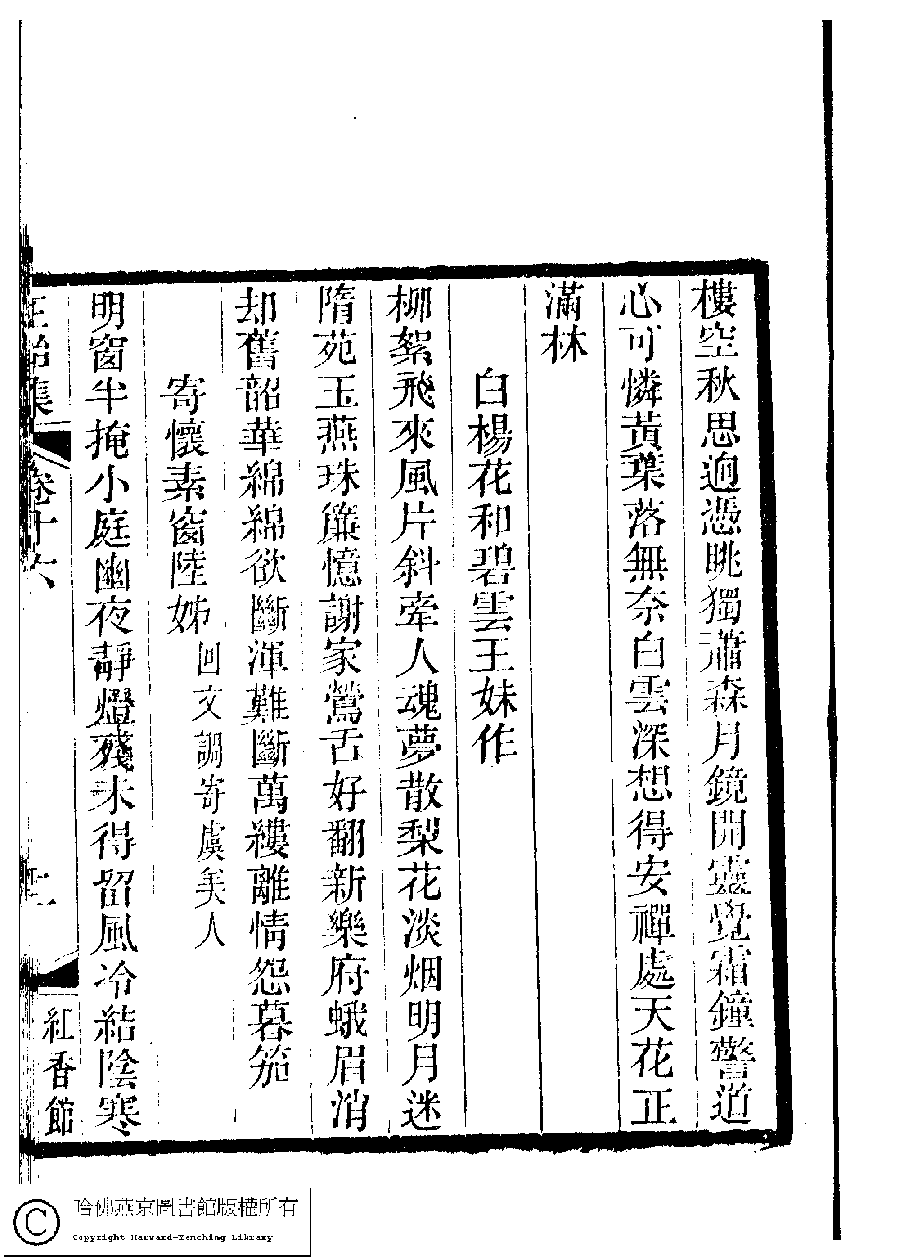 樓空秋思迥憑眺獨蕭森月鏡開靈覺霜鐘警道
心可憐黃葉落無奈白雲深想得安禪處天花正
滿林
白楊花和碧雲王妹作
柳絮飛來風片斜牽人魂夢散梨花淡烟明月迷
隋苑玉燕珠簾憶謝家鶯舌好翻新樂府蛾眉消
却舊韶華綿綿欲斷渾難斷萬縷離情怨暮笳
寄懷素窗陸姊回文調寄虞美人
明窗半掩小庭幽夜靜燈殘未得留風冷結陰寒
正始集 卷十六 紅香館
哈佛燕京圖書館版權所有
Copyright Harvard-Yenching Library